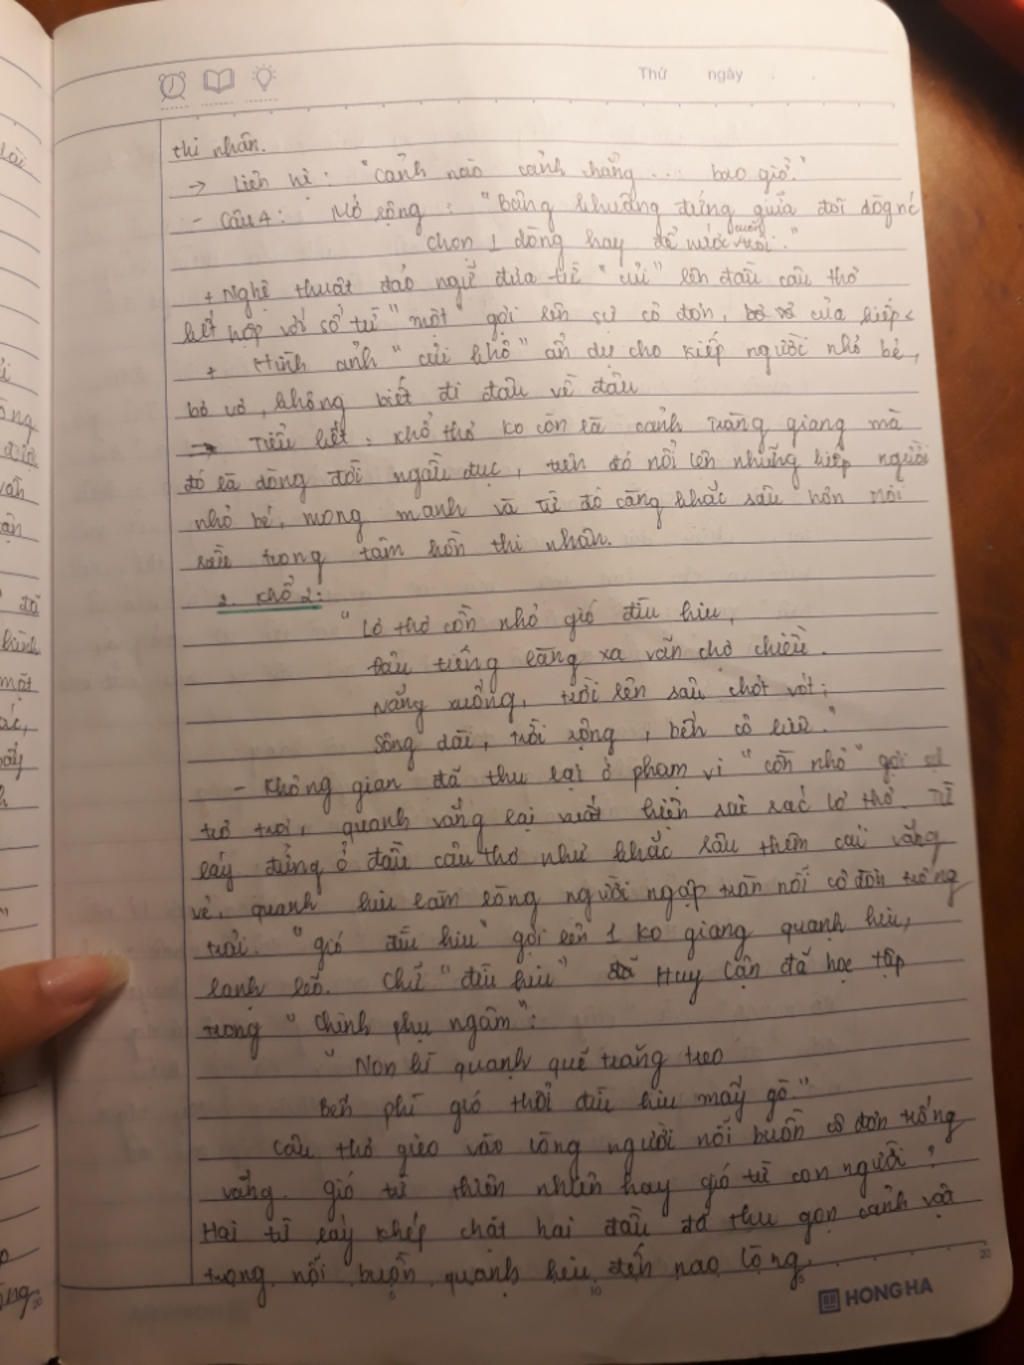 Thứ ngày
thi nhân.
→ Liên hệ: "Cảnh nào cảnh chẳng ... bao giờ."
- Câu 4: Mở rộng: "Bâng khuâng đứng giữa đôi dòng nc
Chọn 1 dòng hay để nước cuốn trôi."
+ Nghệ thuật đảo ngữ đưa từ "củi" lên đầu câu thơ
kết hợp với số từ "một" gợi lên sự cô đơn, của kiếp
+ Hình ảnh "củi khô" ẩn dụ cho kiếp người nhỏ bé,
bơ vơ, không biết đi đâu về đâu
→ Tiểu kết: Khổ thơ ko còn là cảnh tràng giang mà
đó là dòng đời ngầu đục, trên đó nổi lên những kiếp người
nhỏ bé, mong manh và từ đó càng khắc sâu hơn nỗi
sầu trong tâm hồn thi nhân.
2. Khổ 2:
"Lơ thơ cồn nhỏ gió đìu hiu,
Đâu tiếng làng xa vãn chợ chiều.
Nắng xuống, trời lên sâu chót vót;
Sông dài, trời rộng, bến cô liêu."
- Không gian đã thu lại ở phạm vi "cồn nhỏ" gợi sự
trơ trọi, quạnh vắng lại xuất hiện xác lơ thơ. Từ
láy đứng ở đầu câu thơ như khắc sâu thêm cái vắng
vẻ, quạnh hiu làm lòng người ngập tràn nỗi cô đơn trống
trải. "gió đìu hiu" gợi lên 1 ko giang quạnh hiu,
lạnh lẽo. Chữ "đìu hiu" Huy Cận đã học tập
trong "Chinh phụ ngâm":
"Non kì quạnh quẽ trăng treo
Bến phì gió thổi đìu hiu mấy gò."
Câu thơ gieo vào lòng người nỗi buồn cô đơn trống
vắng. gió từ thiên nhiên hay gió từ con người?
Hai từ láy khép chặt hai đầu đã thu gọn cảnh vật
trong nỗi buồn quạnh hiu đến nao lòng.
10
20
HONG HA